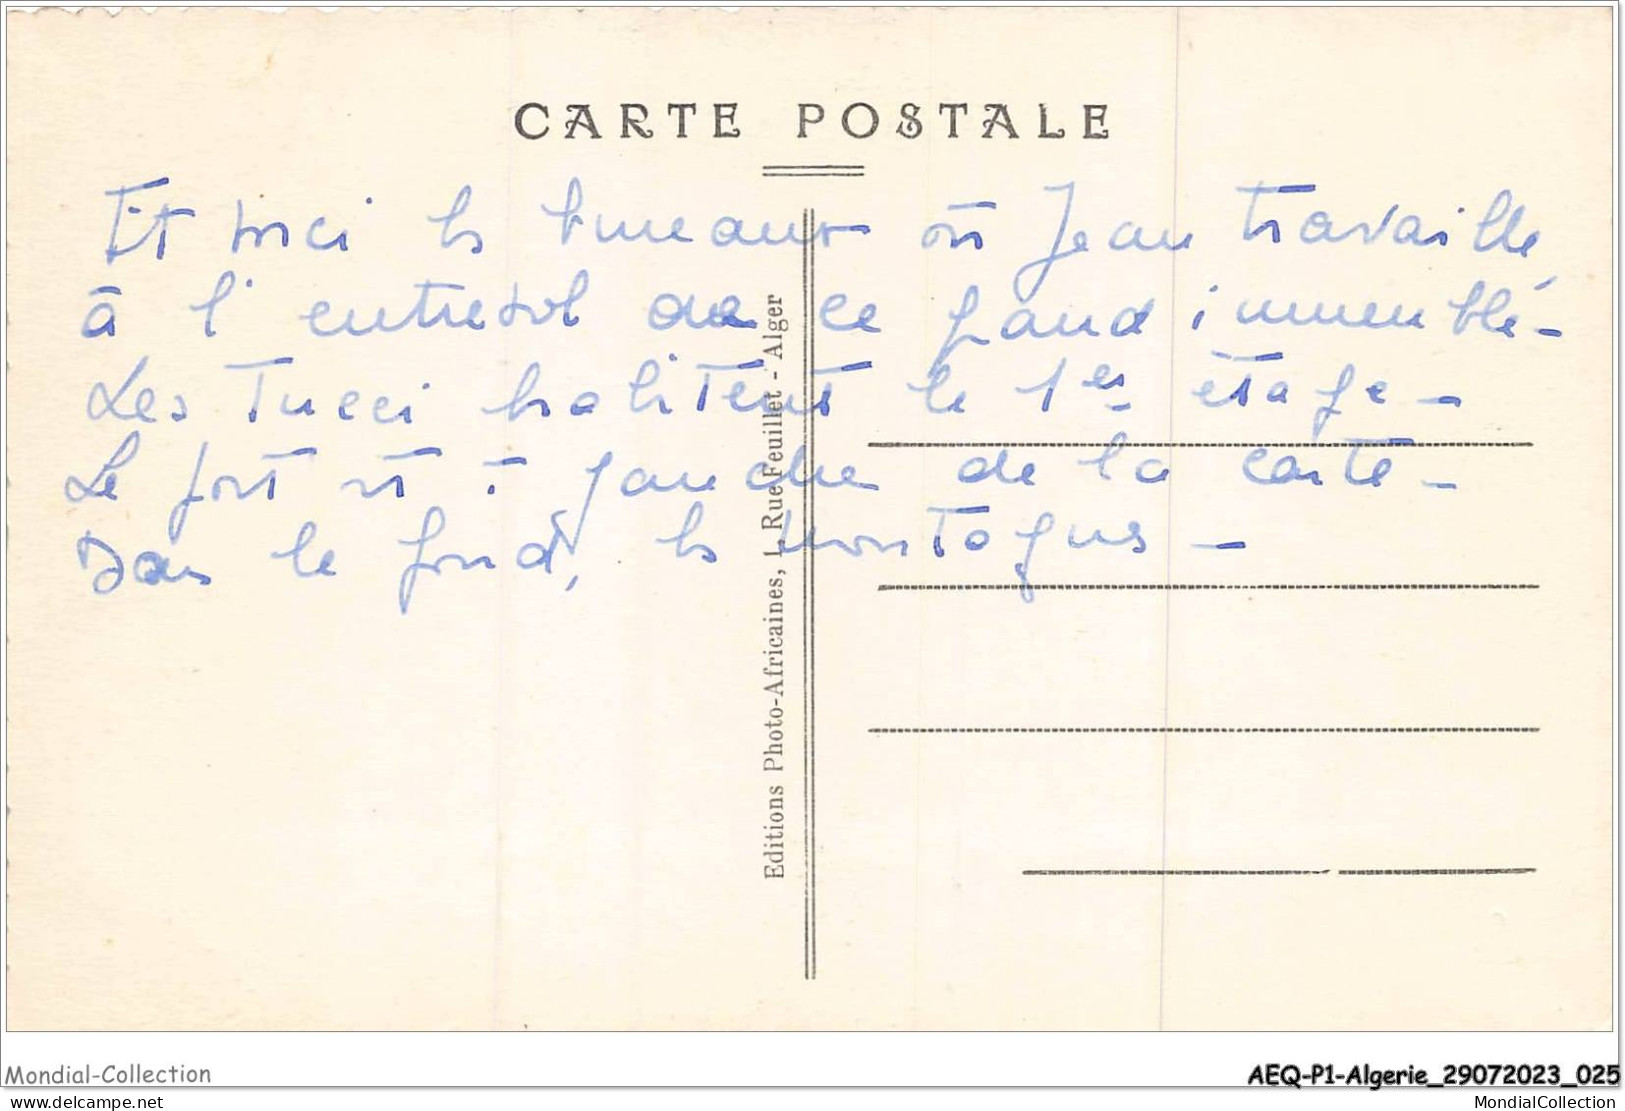 CARTE POSTALE
Et voici les bureaux où Jean travaille,
à l'entresol de ce grand immeuble -
Les Tucci habitent le 1er étage -
Le port est à gauche de la carte -
Dans le fond, les montagnes -
Editions Photo-Africaines, 1, Rue Feuillet - Alger
Mondial-Collection
AEQ-P1-Algerie_29072023_025
delcampe.net
MondialCollection